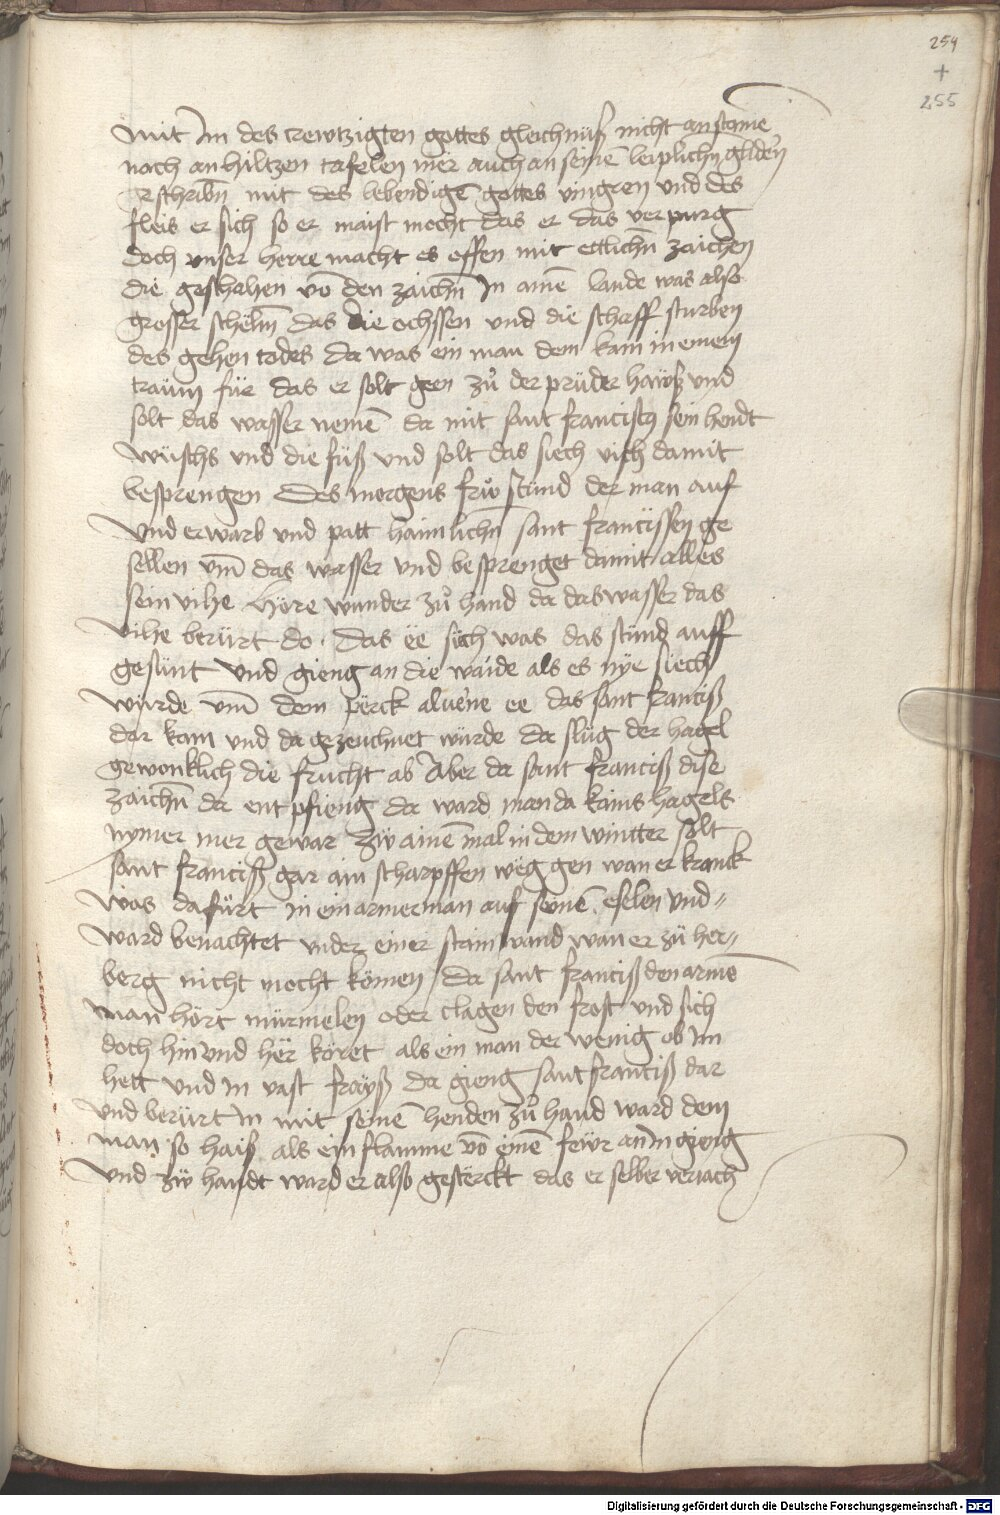 254
+
255
mit Im des crewtzigten gottes gleichnüß nicht an staine
noch an hiltzen tafelen mer auch an seinē leiplichn glidern
geschribn mit des lebendigē gottes vingren und des
fleis er sich so er maist mocht das er das verpurg
doch unser herre macht es offen mit ettlichn zaichen
die geschahen vō den zaichn In ainē lande was also
grosser schelm das die ochssen und die schaff sturben
des gehen todes da was ein man dem kam in einem
traüm für das er solt geen zů der prüder hawß und
solt das wasser nemē da mit sant franciscꝰ sein hendt
wüschs und die füß und solt das siech vich damit
besprengen Des morgens frw stünd der man auf
Und erwarb und patt haimlichn sant francissen ge
sellen vm̄ das wasser und besprenget damit alles
sein vihe Höre wunder zů hand da das wasser das
vihe berürt do das ëe siech was das stünd auff
gesünt und gieng an die waide als es nÿe siech
würde vm̄ dem perck aluerne ee das sant franciß
dar kam und da gezeuchnet würde da slüg der hagel
gewonklich die frucht ab Aber da sant franciß dise
zaichn da entpfieng da ward man da kains hagels
nymer mer gewar Zw ainē mal in dem wintter solt
sant franciß gar ain scharpffen weg gen wan er kranck
was da fürt in ein armer man auf seinē eselen und
ward benachtet under einer stainwand wan er zü her
berg nicht mocht kömen Da sant franciß den armē
man hört mürmelen oder clagen den frost und sich
doch hin und her köret als ein man der wenig ob im
hett und In vast fröyß da gieng sant franciß dar
und berürt In mit seinē henden zů hand ward dem
man so haiß als ein flamme vō einē fewr an In gieng
und zw handt ward er also gesterckt das er selber veriach
Digitalisierung gefördert durch die Deutsche Forschungsgemeinschaft - DFG